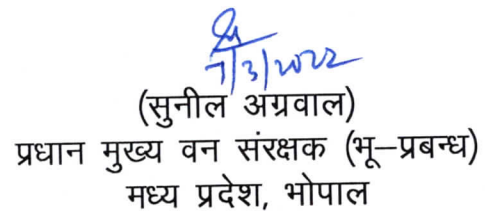 7/3/2022
(सुनील अग्रवाल)
प्रधान मुख्य वन संरक्षक (भू–प्रबन्ध)
मध्य प्रदेश, भोपाल